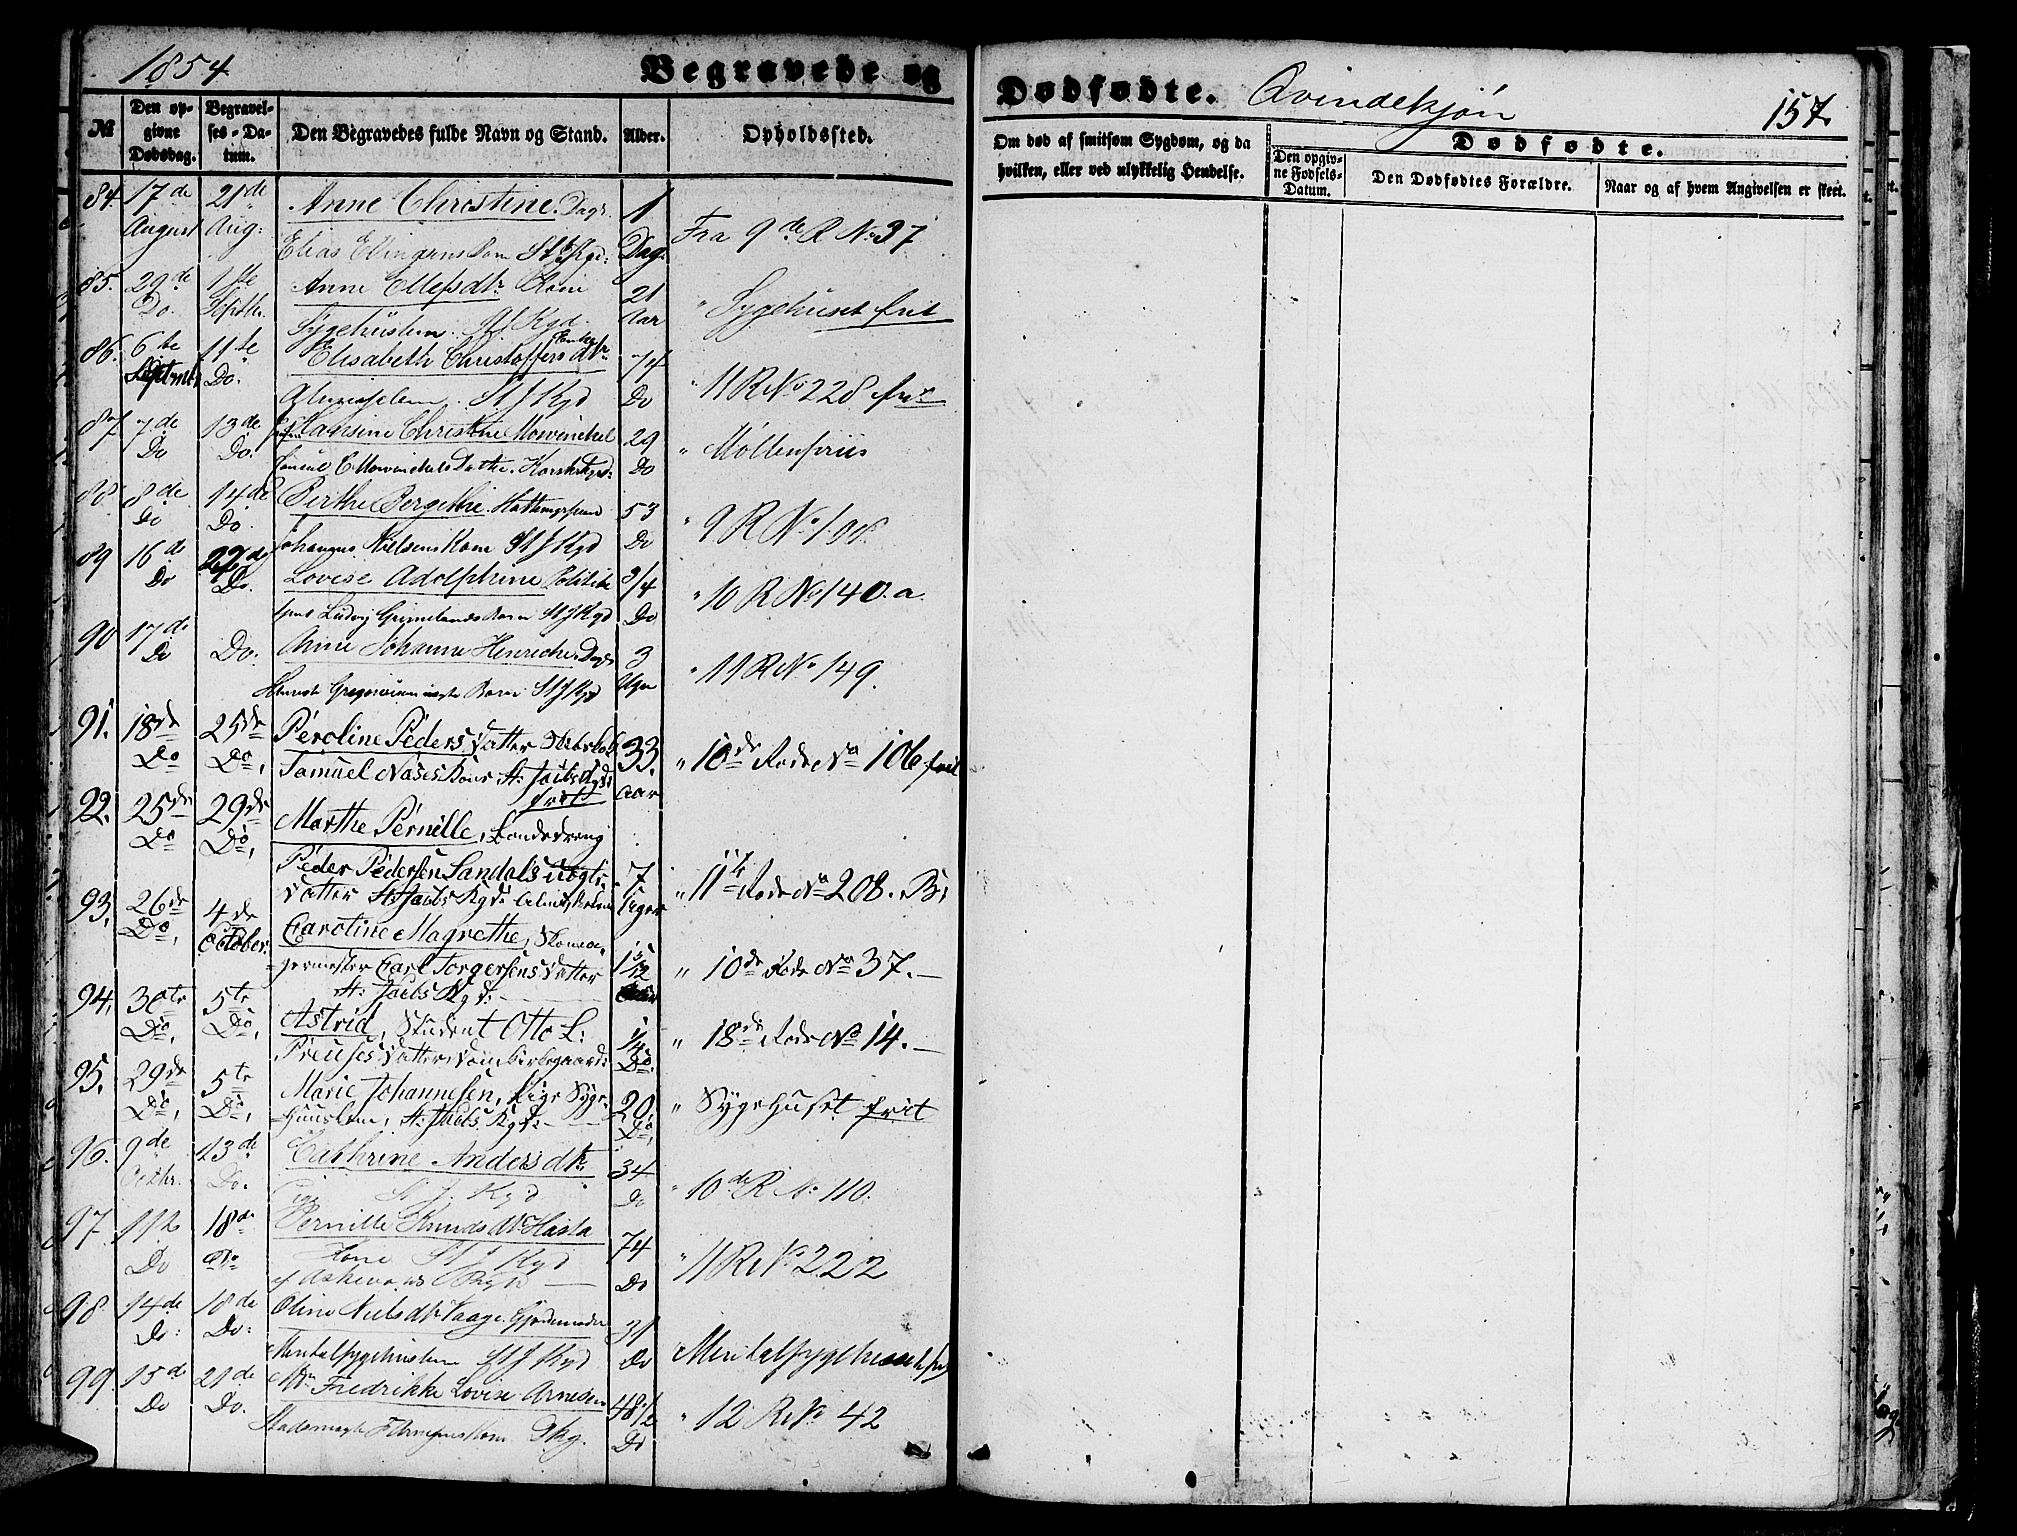 1854
Begravede og
Dødfødte. Qvindekjøn
157.
№
Den opgivne Dødsdag.
Begravelses-Datum.
Den Begravedes fulde Navn og Stand.
Alder.
Opholdssted.
Om død af smitsom Sygdom, og da hvilken, eller ved ulykkelig Hendelse.
Dødfødte.
Den opgivne Fødsels-Datum.
Den Dødfødtes Forældre.
Naar og af hvem Angivelsen er skeet.
84. 17de 21de Anne Christine. Dags. 1
August Aug: Elias Barn St J Kgd: Dag. Fra 9de R No 37
85. 29de 1ste Anne Ellefsdtr 21
Do. Septbr. Sygehuslem. St J Kgd. Aar " Sygehuset frit
86. 6te 11te Elisabeth Christoffersdtr 74
Septmbr Do. St J Kgd Do " 11 R No 228 frit
87 7de 13de Hansine Christine Mowinckel 29
Do Do. Mowinckels Datter. Korskkgd: Do " Møllenpriis
88. 8de 14de Berthe Bergethe 53
Do Do. Johannes Nielsens Kone St J Kgd Do " 9 R No 108
89 16de 22de Lovise Adolphine Politibe 3/4
Do Do. tjent Ludvig Grimelands Barn St J Kgd Do " 10 R No 140. a.
90 17de Anne Johanna Henriche Dags 3
Do Do. Henrik Barn St J Kgd Uger " 11 R No 149.
91. 18de 25de Peroline Pedersdatter 33.
Do Do, Samuel Næses Kone St. Jacobs Kgd: frit aar " 10de Rode No 106 frit
92. 25de 29de Marthe Pernille, Bondedreng
Do Do, Peder Pedersen Sandals uægte 7
datter St. Jacobs Kgd: Uger " 11te Rode No 208. B.
93. 26de 4de Caroline Magrethe, Skoma-
Do, October. germester Carl Torgersens datter 1 5/12 " 10de Rode No 37. —
St: Jacobs Kgd: —
94. 30te 5te Astrid, Student Otto L: 1/4
Do, Do, Preuses datter Domkirkegaard: Do. " 18de Rode No 14. —
95. 29de 5te Marie Johannesen, Pige Syge- 20.
Do, Do, huuslem, St: Jacobs Kgd: — Do, " Sygehuset frit
96. 9de 13de Cathrine Andersdtr 34
Octbr. Do. Pige St J. Kgd Do " 10de R No 110.
97. 11te 18de Pernille Knudsdtr 74
Do Do Kone St J Kgd Do " 11 R No 222
98 14de 18de Oline Nielsdtr Vaage 31
Do: Do: Mentalsygehuslem St J Kgd Do Mentalsygehuset frit
99 15de 21de Md. Fredrikke Lovise Arnesen 48 1/2
Do Do. Kone Do " 12 R No 42